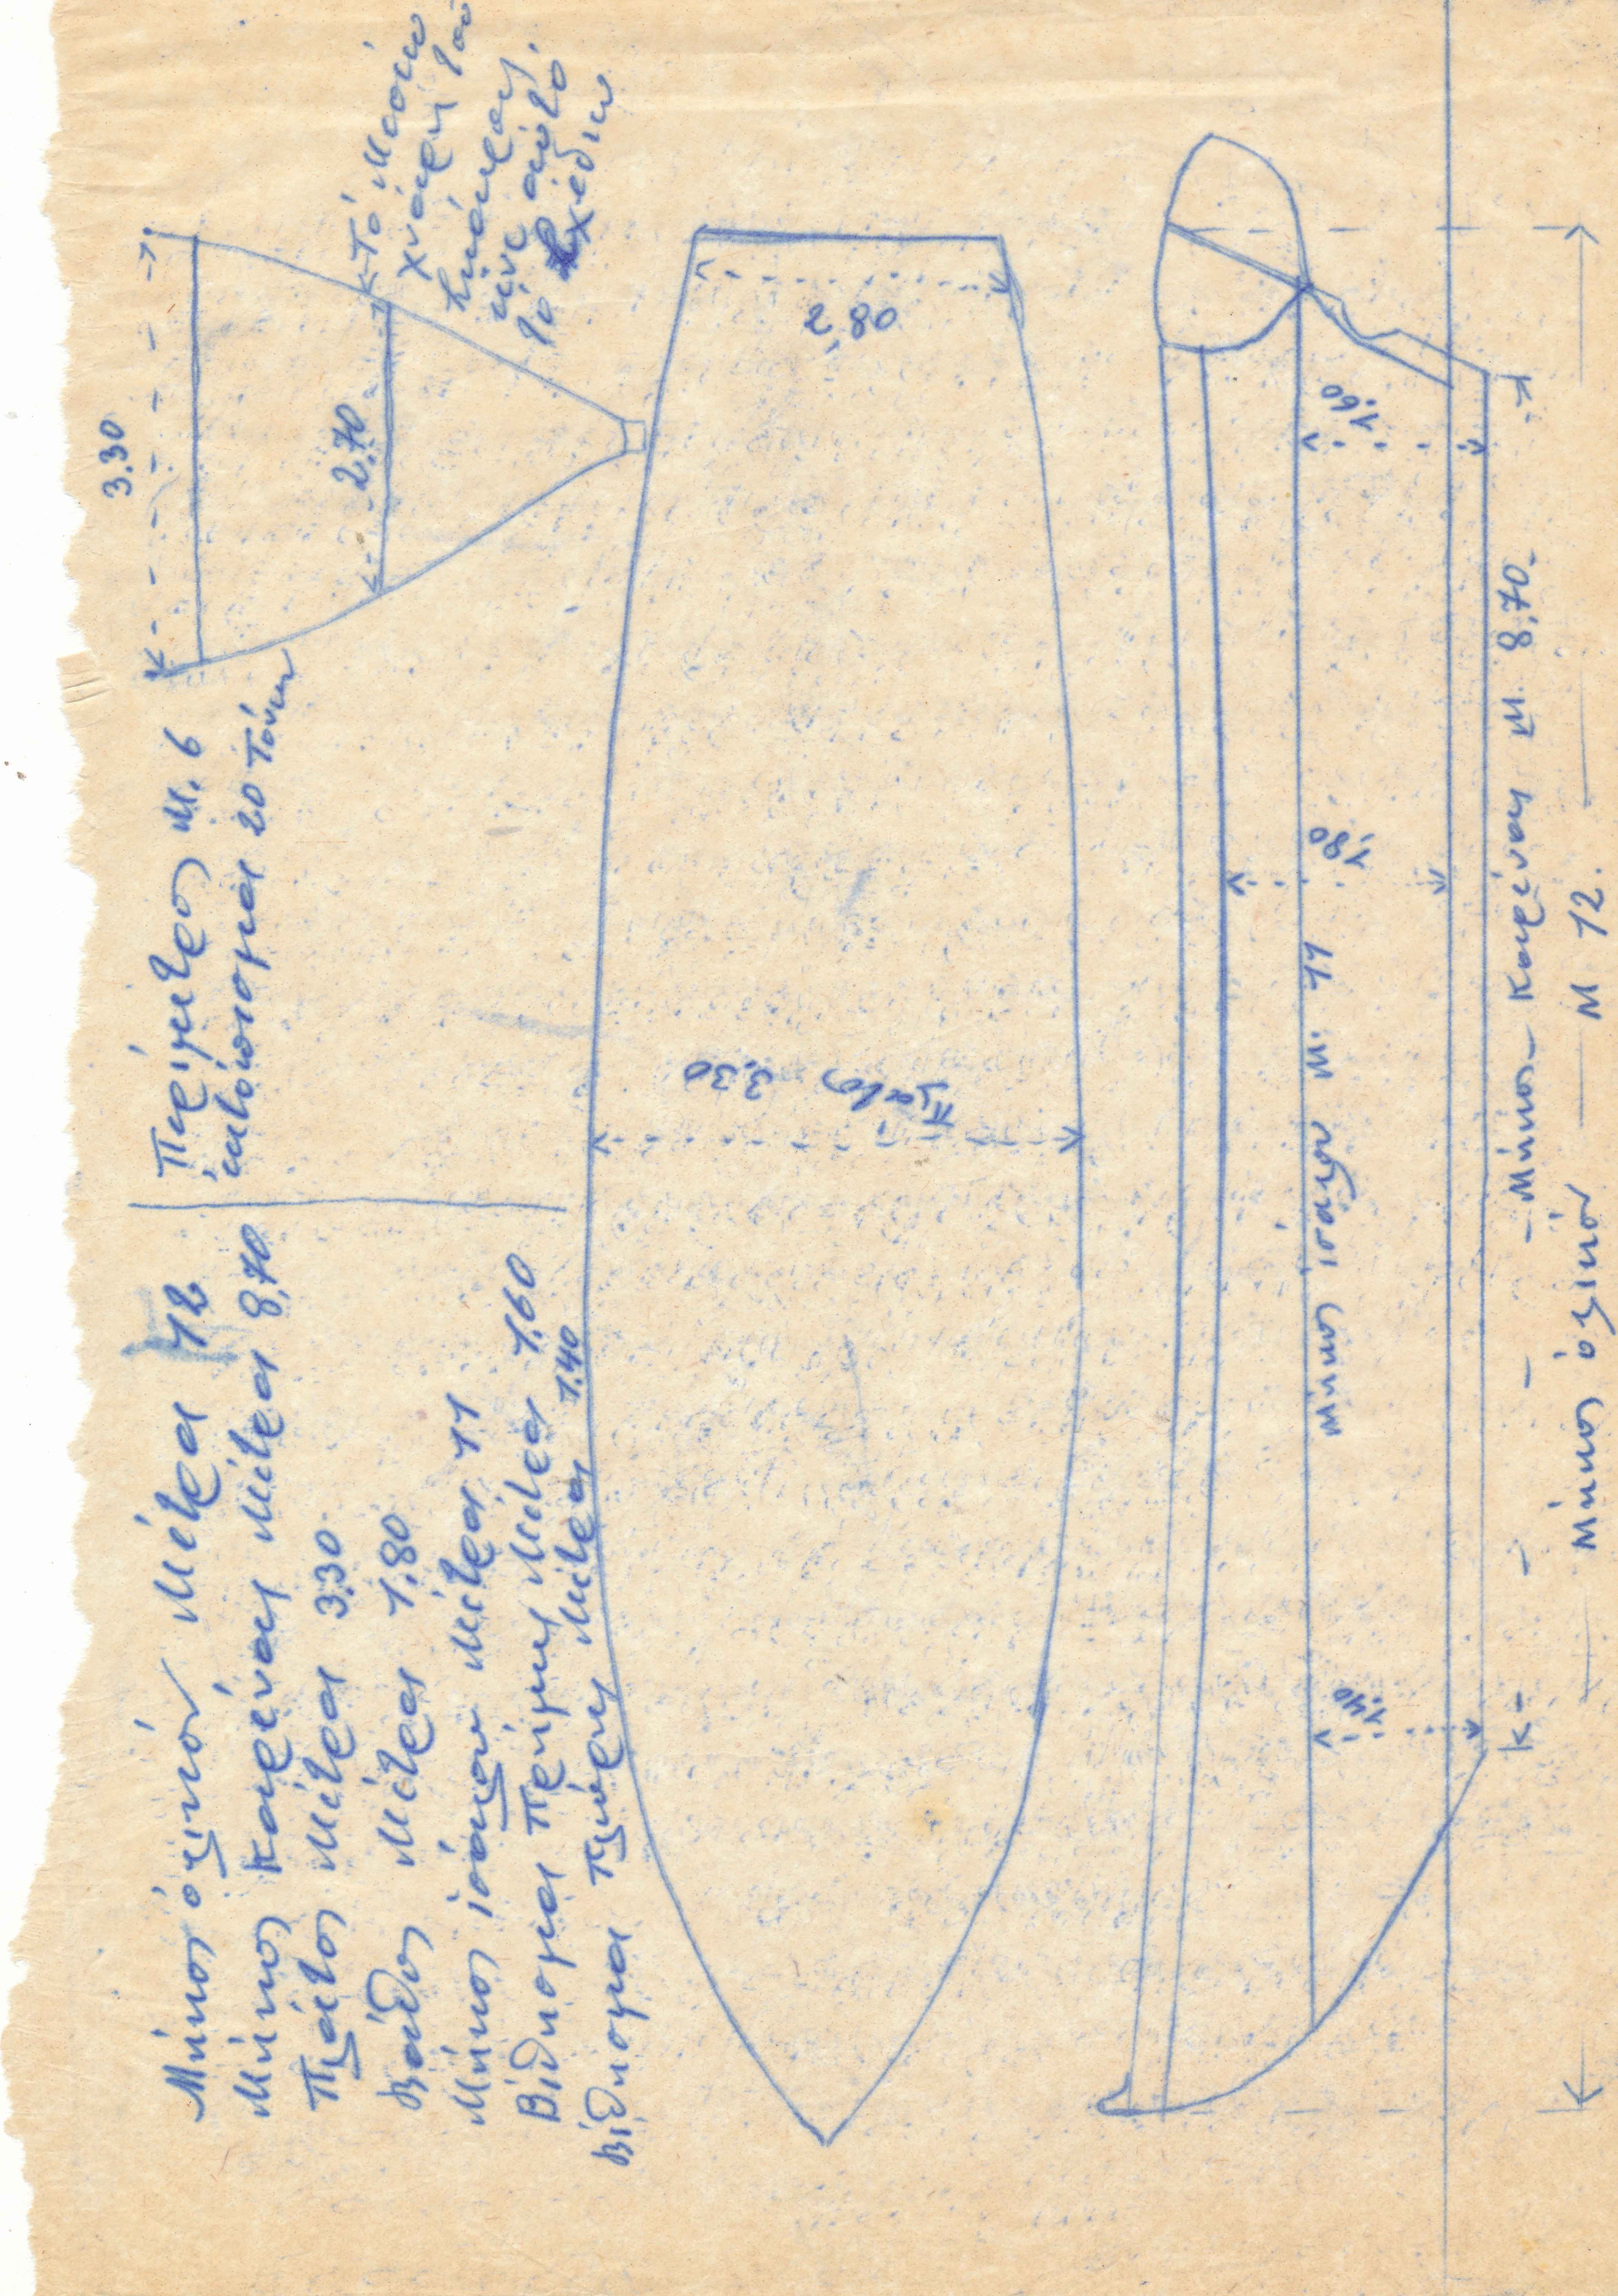 Μήκος όλικόν Μέτρα 12
Μήκος Καρένας Μέτρα 8,70
Πλάτος Μέτρα 3.30
Βάθος Μέτρα 1.80
Μήκος ισάλου Μέτρα 11
Βίθησμα Πρίμης Μέτρα 1.60
Βίθησμα πλόρης Μέτρα 1.40
Περίμετρος Μ. 6
έκτόπισμα 20 τόνων
3.30
2.70
Τό Μεσαίω
είνε αύτό
τό χέδιω
2,80
Πλάτος 3.30
1.60
1.80
1.40
Μήκος ισάλου Μ. 11
Μήκος Καρένας Μ. 8,70
Μήκος όλικόν Μ 12.